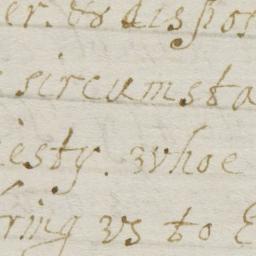 er. & dispos
circumsta
iesty. whoe
ring vs to E